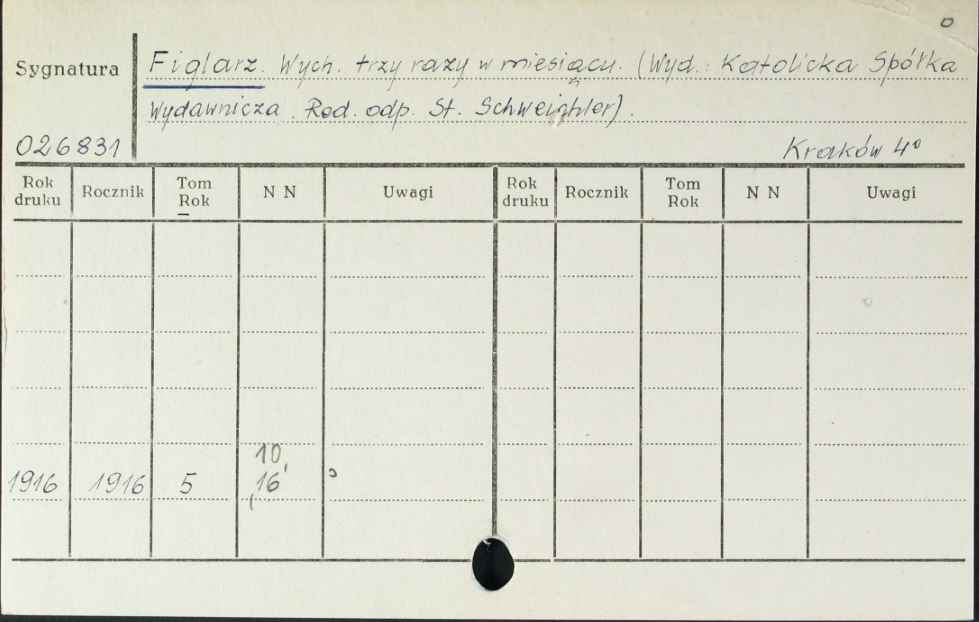 Sygnatura
Figlarz. Wych. trzy razy w miesiącu. (Wyd.: Katolicka Spółka
Wydawnicza. Red. odp. St. Schweichler).
026831
Kraków 4°
Rok druku Rocznik Tom Rok N N Uwagi Rok druku Rocznik Tom Rok N N Uwagi
10,
1916 1916 5 16